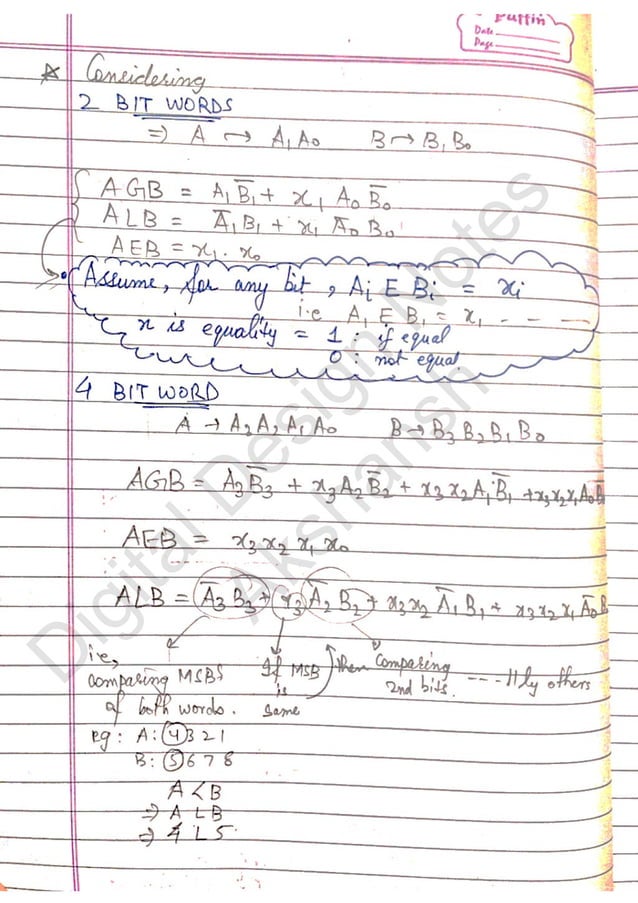 Puffin
Date
Page
☆ Considering
2 BIT WORDS
⇒ A → A₁A₀ B → B₁B₀
AGB = A₁B̅₁ + x₁ A₀B̅₀
ALB = A̅₁B₁ + x₁ A̅₀B₀
AEB = x₁.x₀
Assume, for any bit, Aᵢ E Bᵢ = xᵢ
i.e A₁ E B₁ = x₁ - - - -
x is equality = 1 : if equal
0 : not equal
4 BIT WORD
A → A₂A₂A₁A₀ B → B₃B₂B₁B₀
AGB = A₃B̅₃ + x₃A₂B̅₂ + x₃x₂A₁B̅₁ + x₃x₂x₁A₀B̅
AEB = x₃x₂x₁x₀
ALB = A̅₃B₃ + x₃A̅₂B₂ + x₃x₂A̅₁B₁ + x₃x₂x₁A̅₀B
i.e, comparing MSBs of both words.
If MSB is same
then Comparing 2nd bits.
- - - - lly others
eg : A: 4321
B: 5678
A < B
⇒ A L B
⇒ 4 L 5
Digital Design Notes
Akshansh